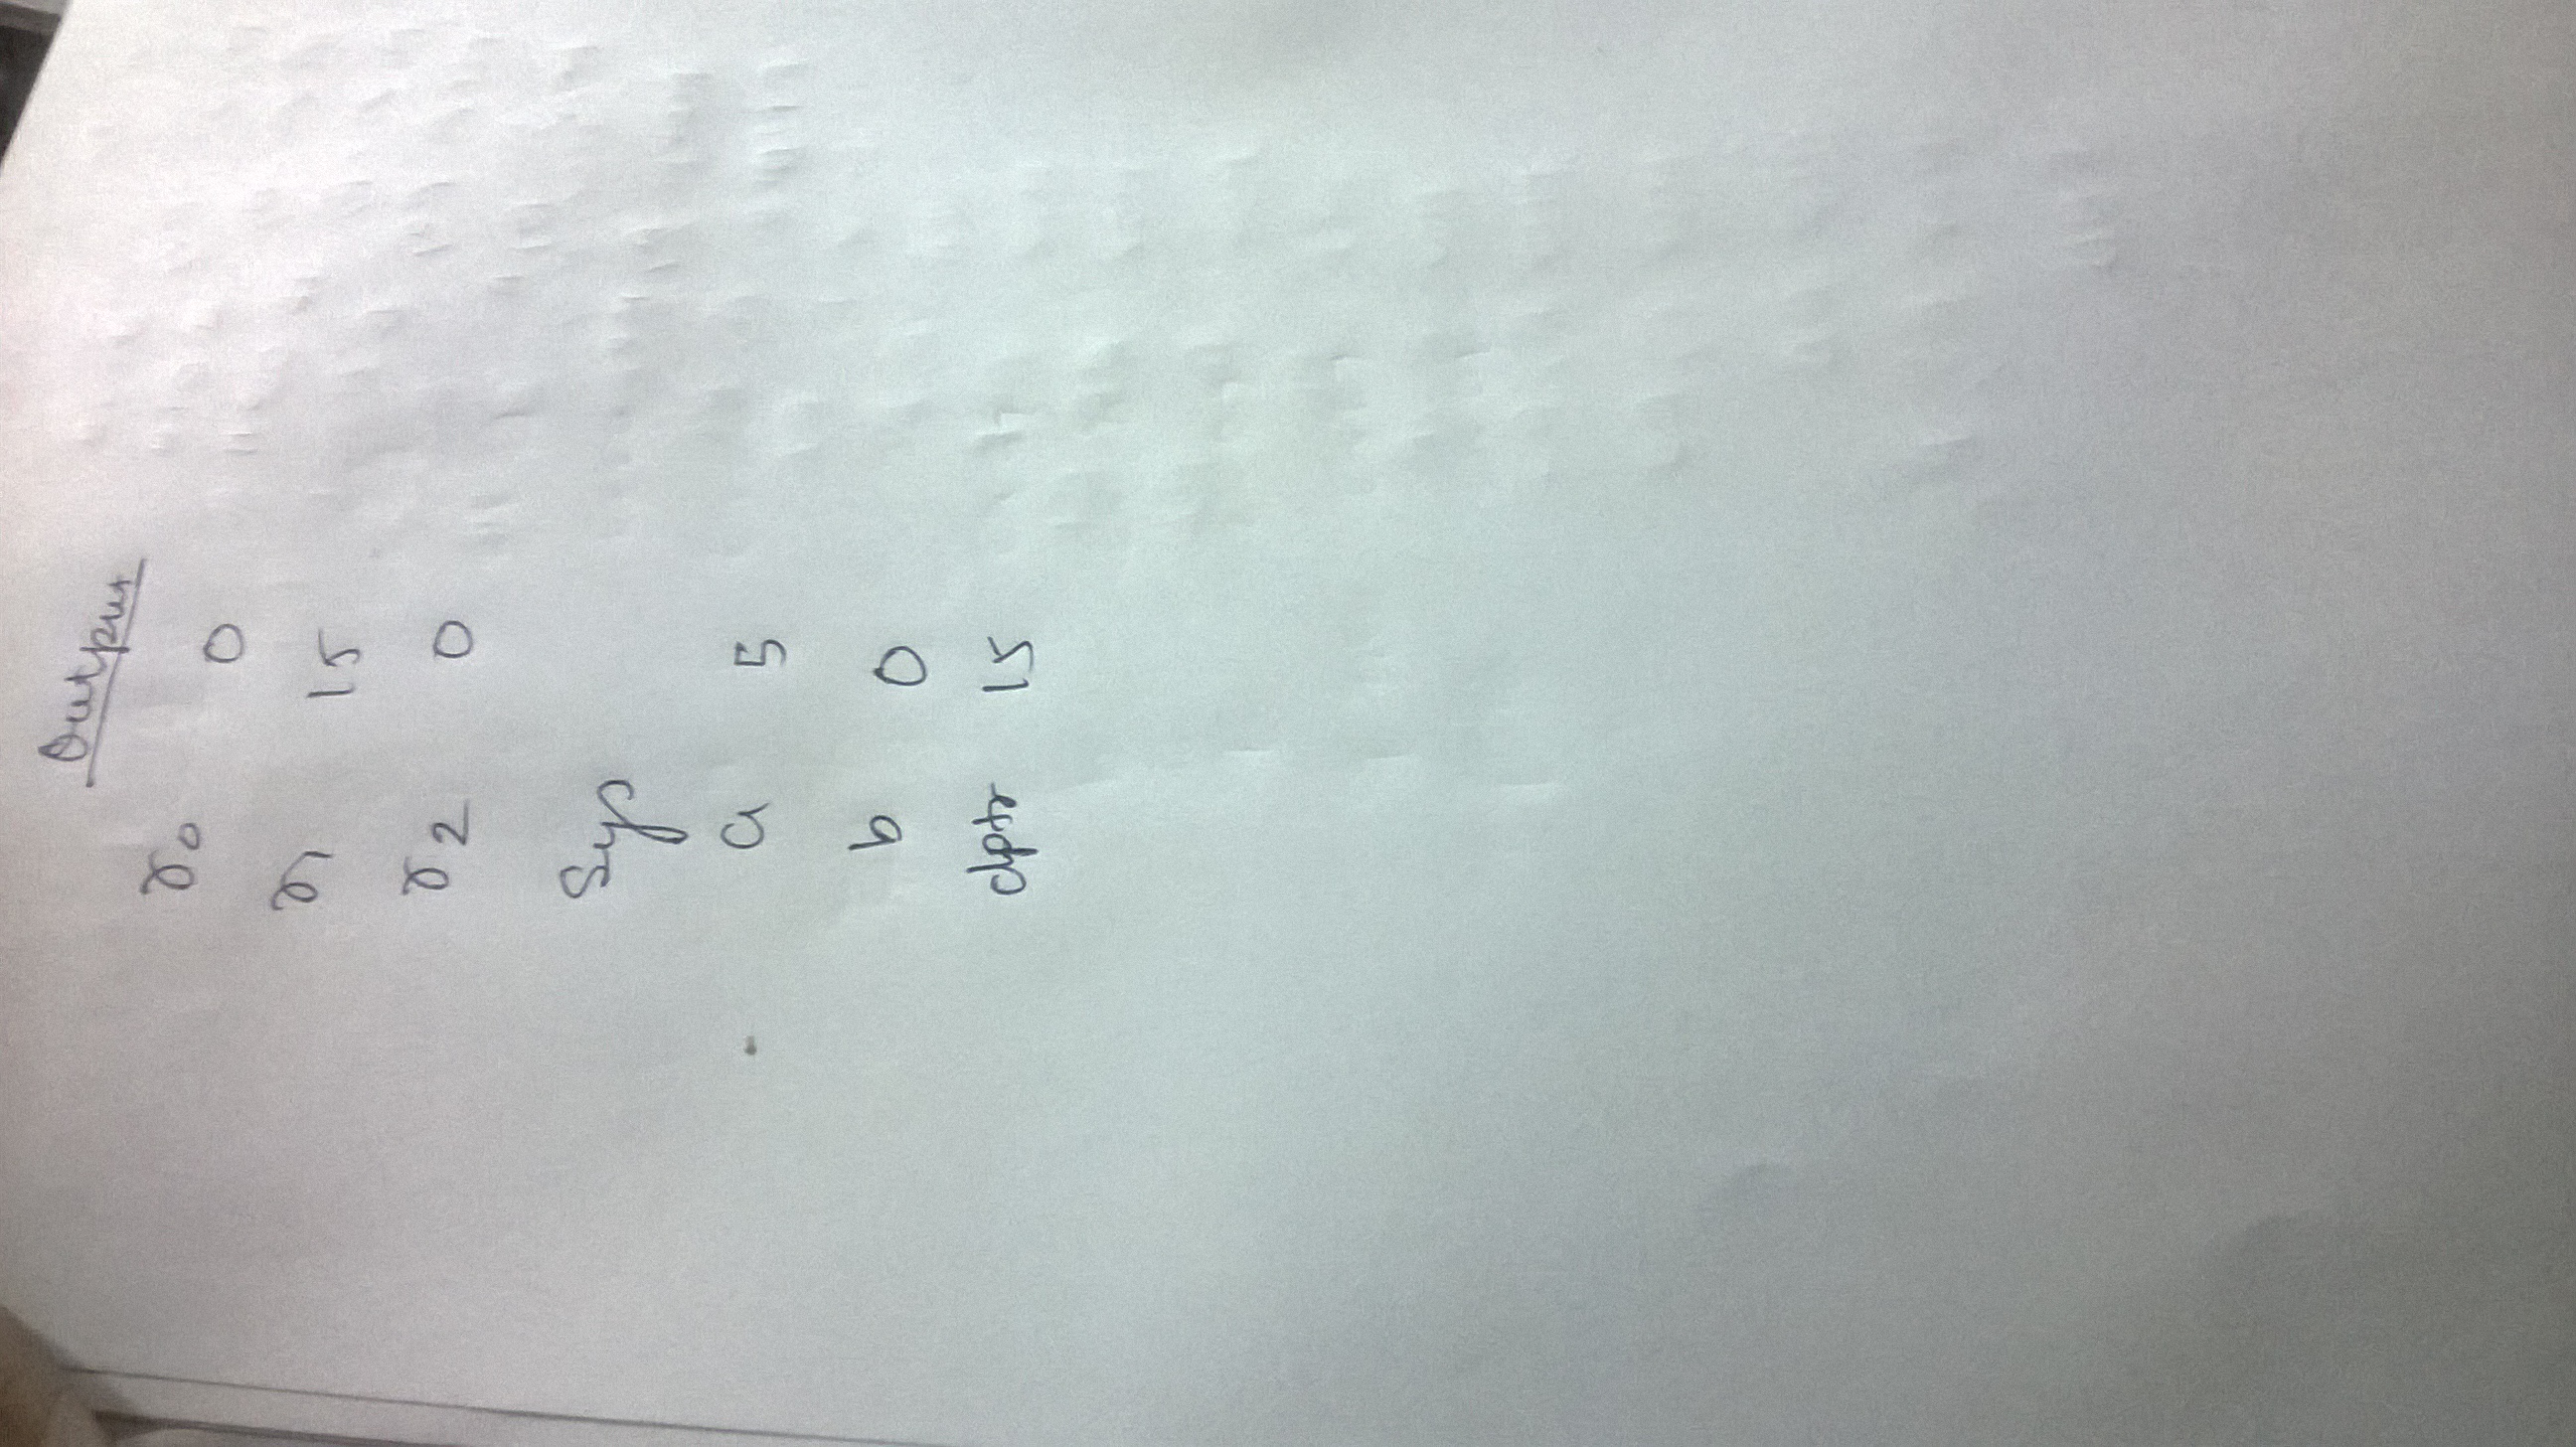 Output
r0 0
r1 15
r2 0
Sys
a 5
b 0
dptr 15